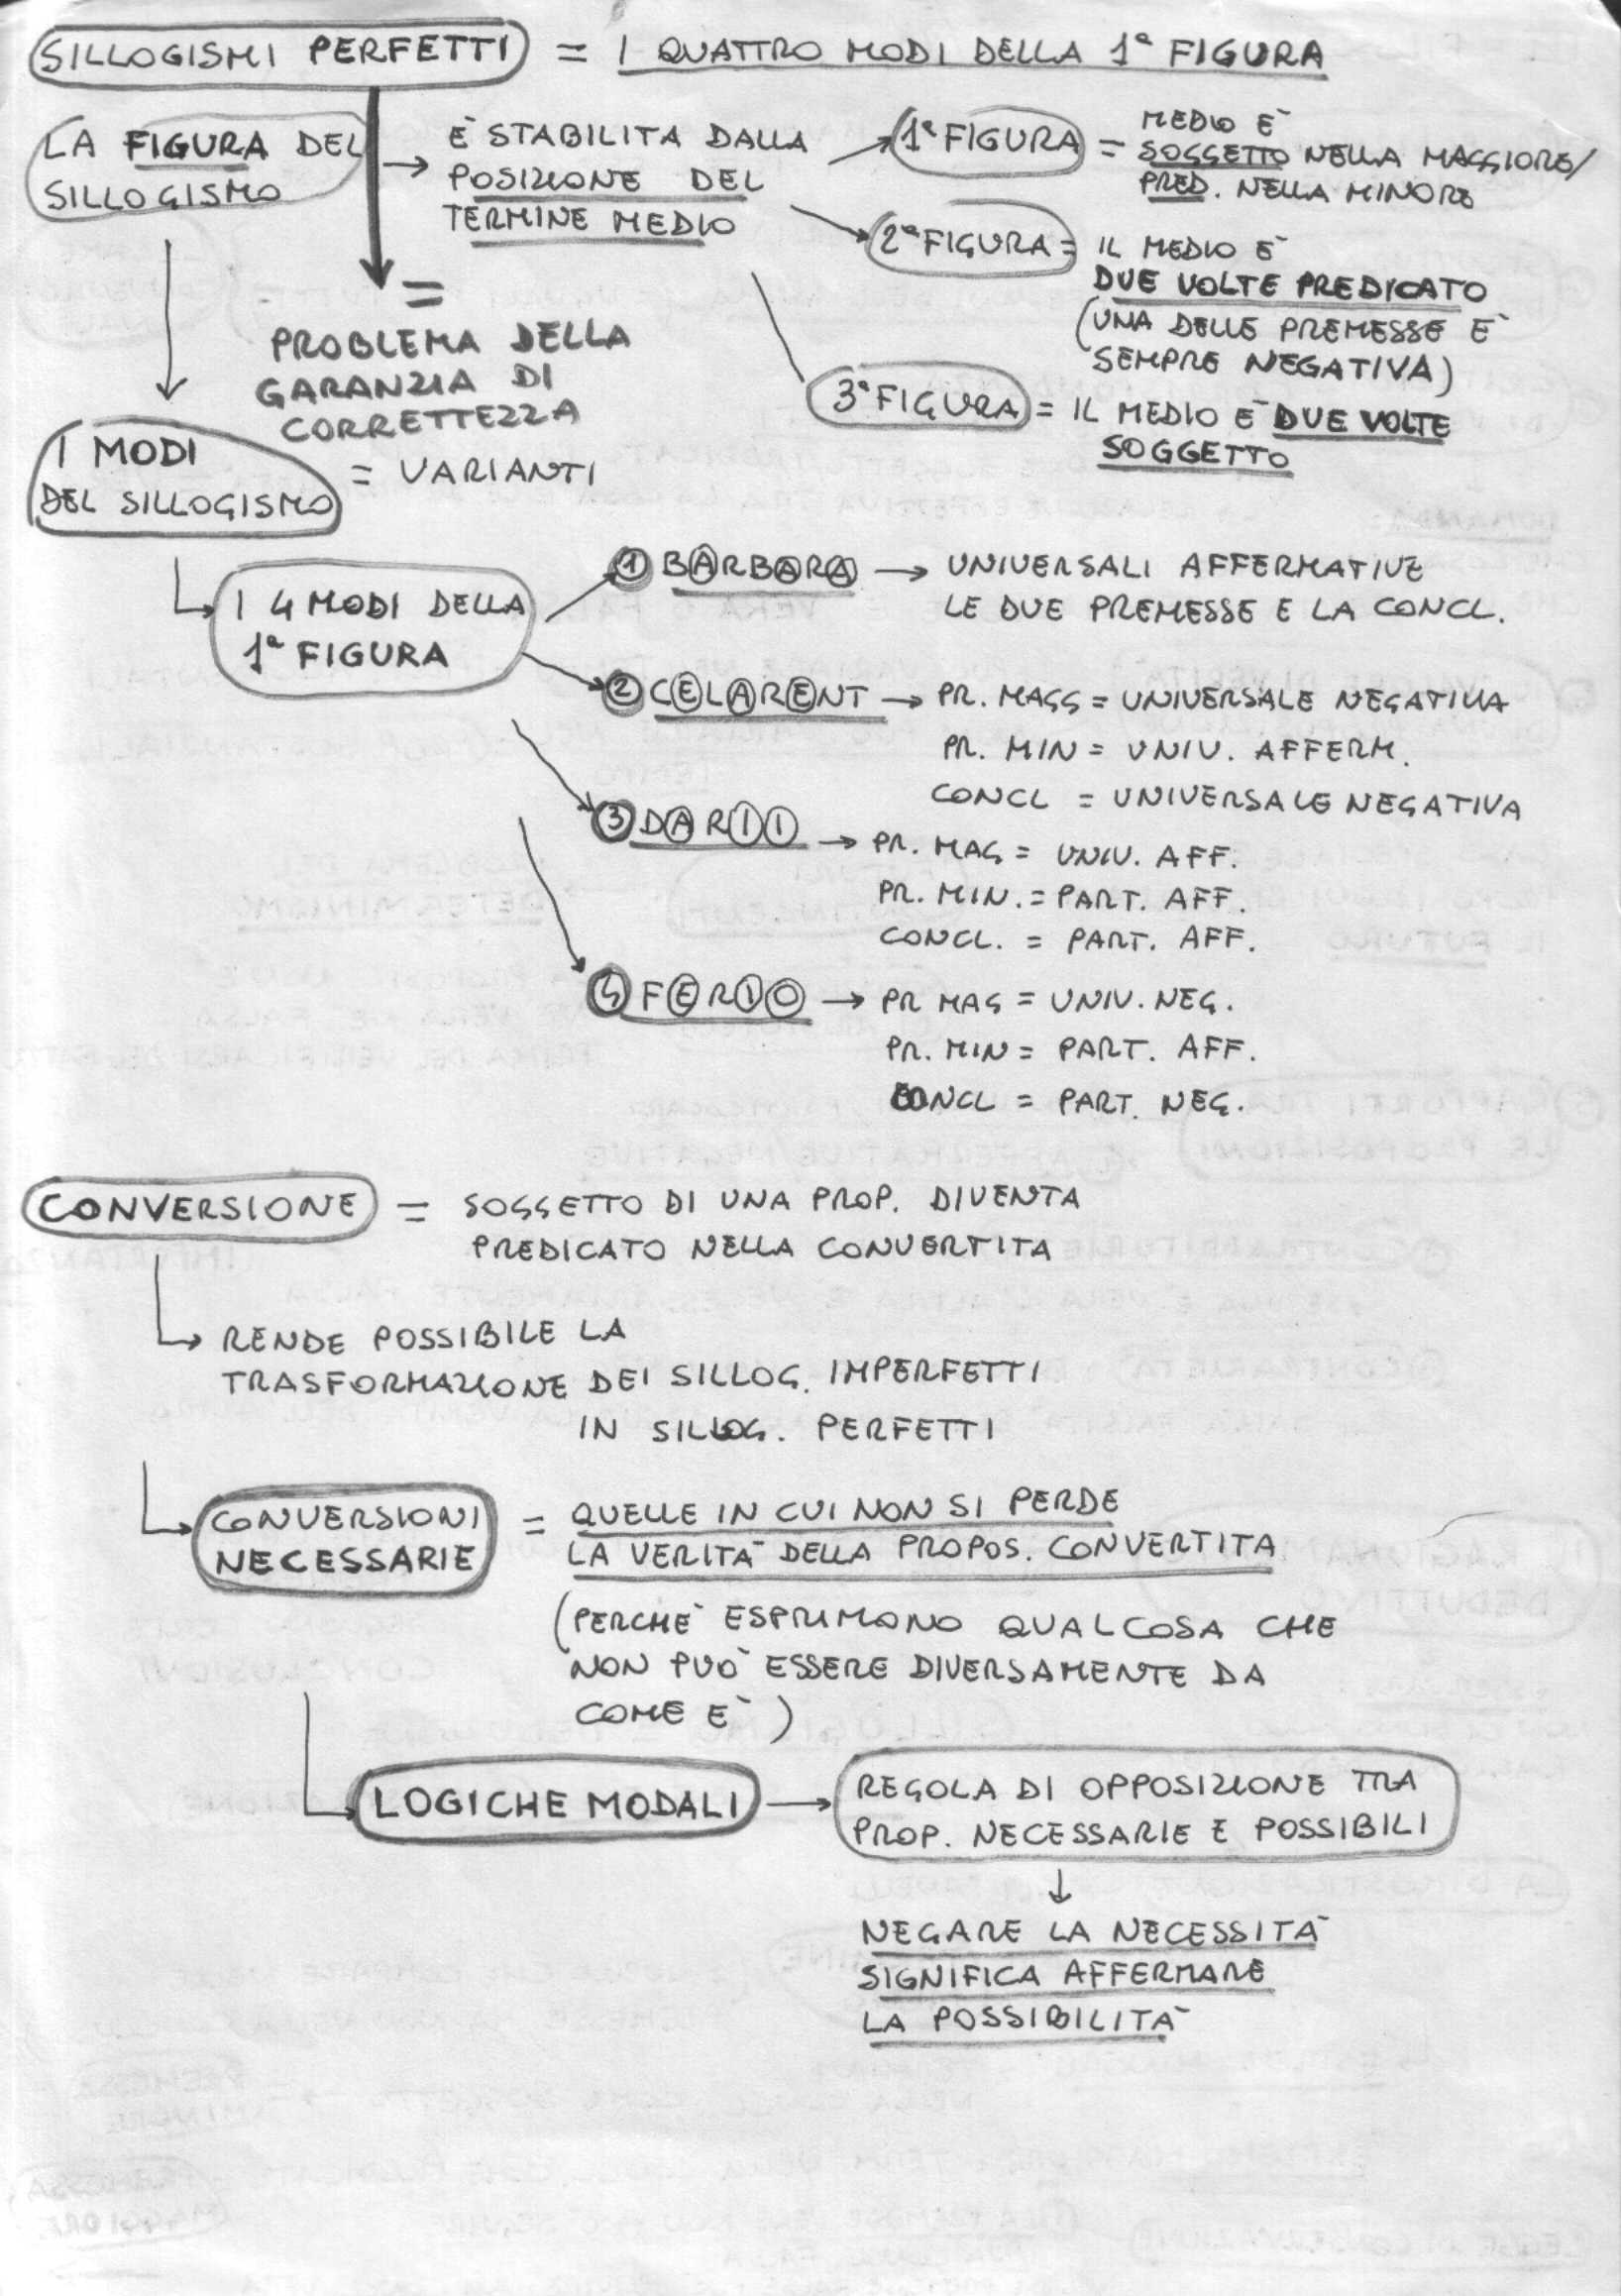 SILLOGISMI PERFETTI = I QUATTRO MODI DELLA 1ª FIGURA
LA FIGURA DEL
SILLOGISMO
→ È STABILITA DALLA
POSIZIONE DEL
TERMINE MEDIO
1ª FIGURA =
MEDIO È
SOGGETTO NELLA MAGGIORE/
PRED. NELLA MINORE
2ª FIGURA = IL MEDIO È
DUE VOLTE PREDICATO
(UNA DELLE PREMESSE È
SEMPRE NEGATIVA)
3ª FIGURA = IL MEDIO È DUE VOLTE
SOGGETTO
=
PROBLEMA DELLA
GARANZIA DI
CORRETTEZZA
I MODI
DEL SILLOGISMO = VARIANTI
I 4 MODI DELLA
1ª FIGURA
1 BARBARA → UNIVERSALI AFFERMATIVE
LE DUE PREMESSE E LA CONCL.
2 CELARENT → PR. MAGG = UNIVERSALE NEGATIVA
PR. MIN = UNIV. AFFERM.
CONCL = UNIVERSALE NEGATIVA
3 DARII → PR. MAG = UNIV. AFF.
PR. MIN. = PART. AFF.
CONCL. = PART. AFF.
4 FERIO → PR MAG = UNIV. NEG.
PR. MIN = PART. AFF.
CONCL = PART. NEG.
CONVERSIONE = SOGGETTO DI UNA PROP. DIVENTA
PREDICATO NELLA CONVERTITA
RENDE POSSIBILE LA
TRASFORMAZIONE DEI SILLOG. IMPERFETTI
IN SILLOG. PERFETTI
CONVERSIONI
NECESSARIE
= QUELLE IN CUI NON SI PERDE
LA VERITÀ DELLA PROPOS. CONVERTITA
(PERCHÈ ESPRIMONO QUALCOSA CHE
NON PUÒ ESSERE DIVERSAMENTE DA
COME È)
LOGICHE MODALI →
REGOLA DI OPPOSIZIONE TRA
PROP. NECESSARIE E POSSIBILI
↓
NEGARE LA NECESSITÀ
SIGNIFICA AFFERMARE
LA POSSIBILITÀ